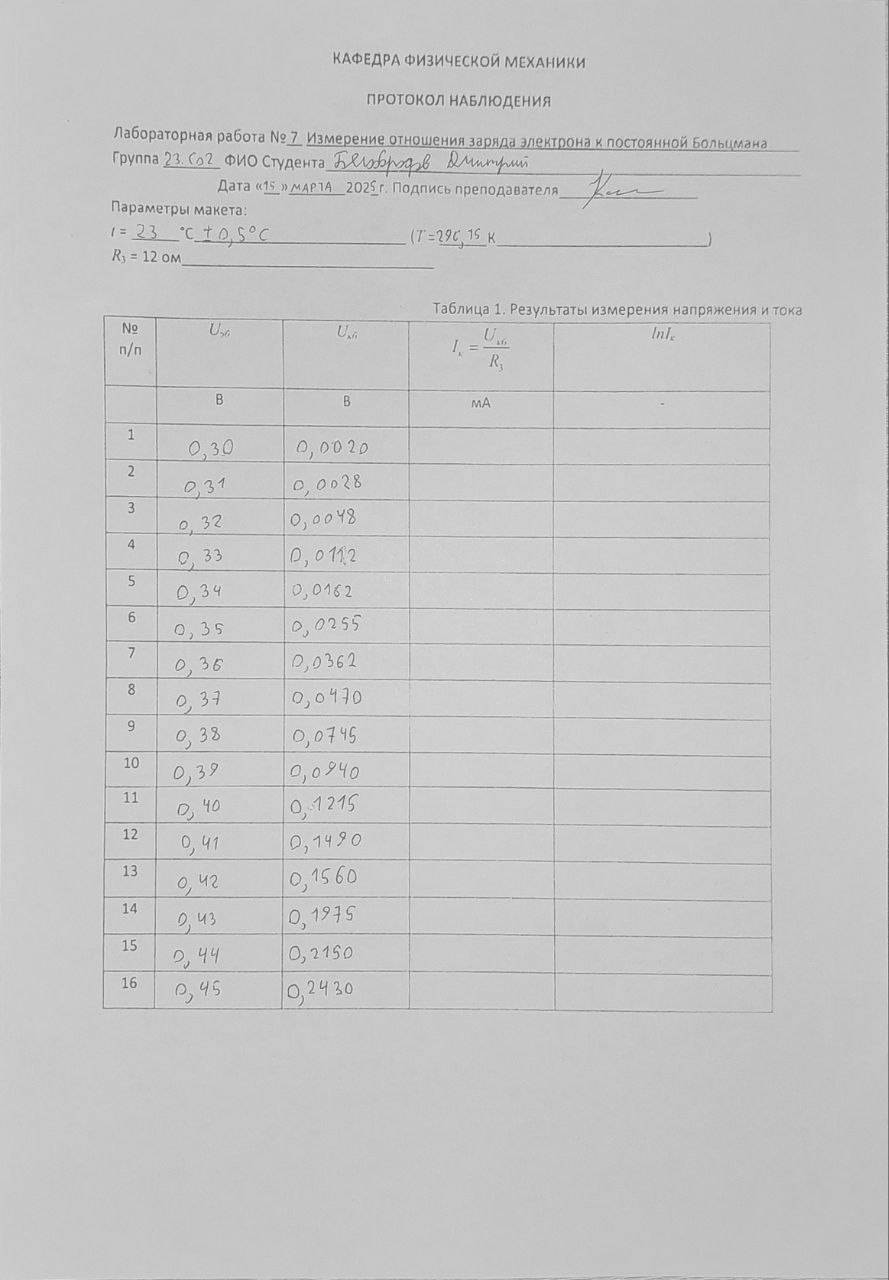 КАФЕДРА ФИЗИЧЕСКОЙ МЕХАНИКИ
ПРОТОКОЛ НАБЛЮДЕНИЯ
Лабораторная работа № 7 Измерение отношения заряда электрона к постоянной Больцмана
Группа 23.С02 ФИО Студента Дмитрий
Дата «15» МАРТА 2025 г. Подпись преподавателя
Параметры макета:
t = 23 °C ± 0,5°C (T = 296,15 К )
R3 = 12 ом
Таблица 1. Результаты измерения напряжения и тока
№ п/п Uэб Uкб Iк = Uкб / R3 lnIк
В В мА -
1 0,30 0,0020
2 0,31 0,0028
3 0,32 0,0048
4 0,33 0,0112
5 0,34 0,0162
6 0,35 0,0255
7 0,36 0,0362
8 0,37 0,0470
9 0,38 0,0745
10 0,39 0,0940
11 0,40 0,1215
12 0,41 0,1490
13 0,42 0,1560
14 0,43 0,1975
15 0,44 0,2150
16 0,45 0,2430